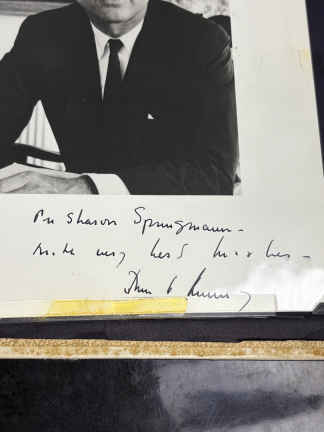 For Sharon Springmann -
with very best wishes -
John F Kennedy